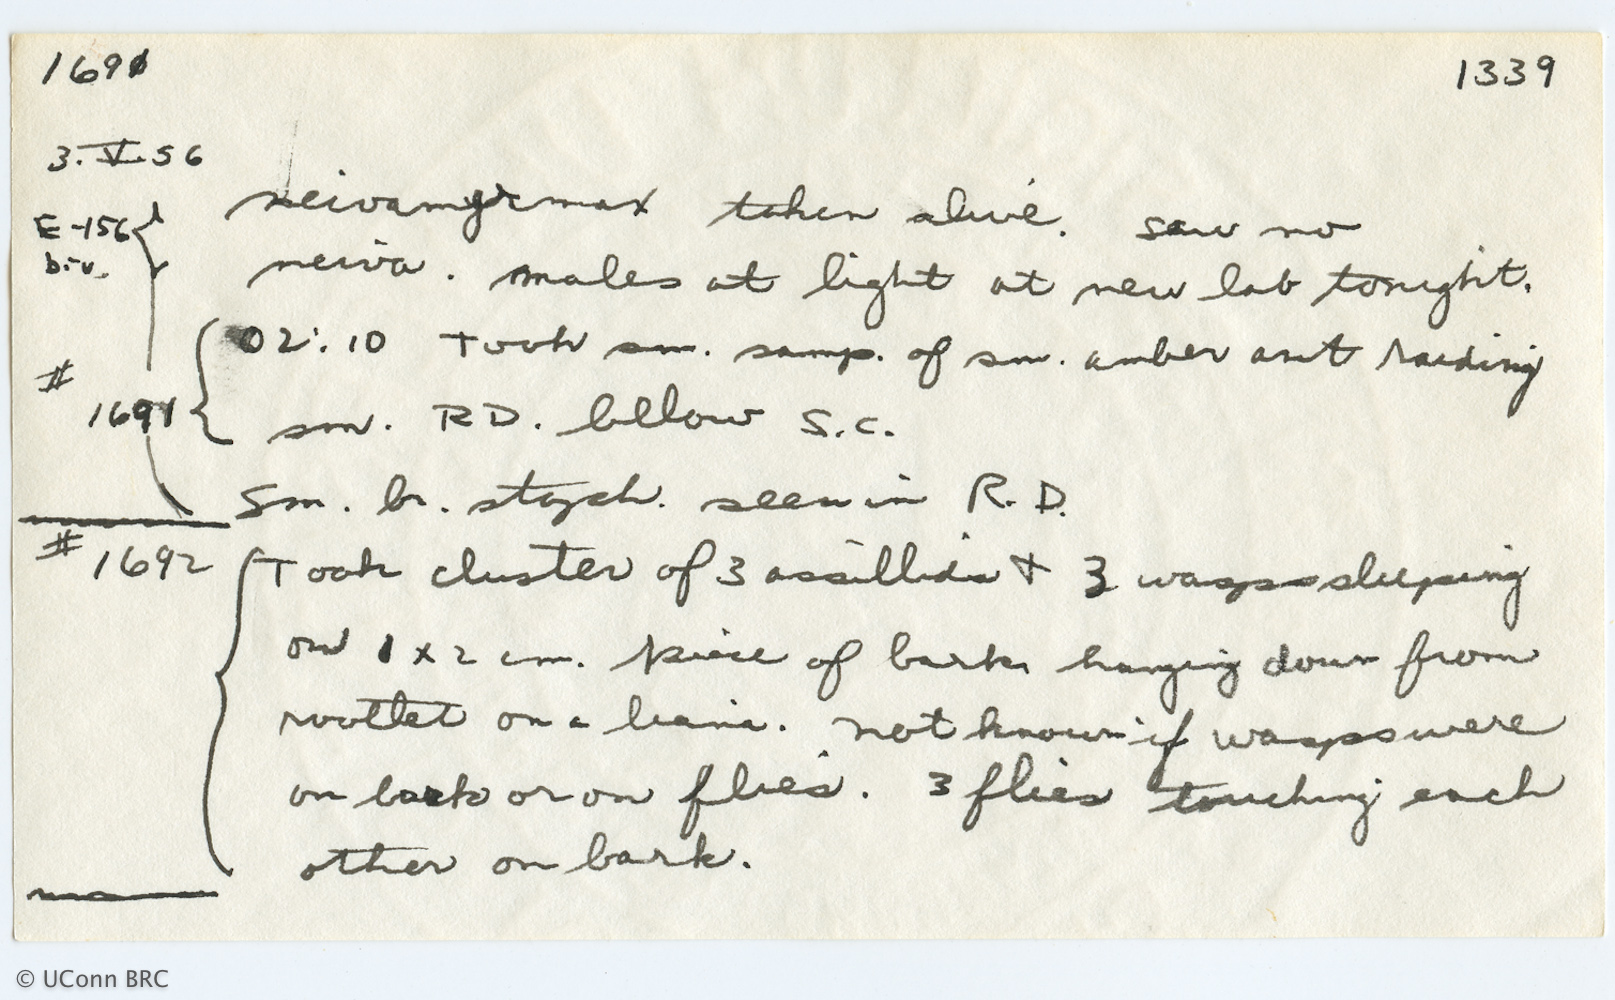 1691 1339
3. V. 56
E-156
b-v.
neivamyrmex taken alive. saw no
neiva. males at light at new lab tonight.
02:10 Took sm. samp. of sm. amber ant raiding
# 1691
sm. RD. bllow S.C.
Sm. br. staph. seen in R.D.
# 1692
Took cluster of 3 assillids + 3 wasps sleeping
on 1 x 2 cm. piece of bark hanging down from
rootlet on a liana. not known if wasps were
on bark or on flies. 3 flies touching each
other on bark.
© UConn BRC